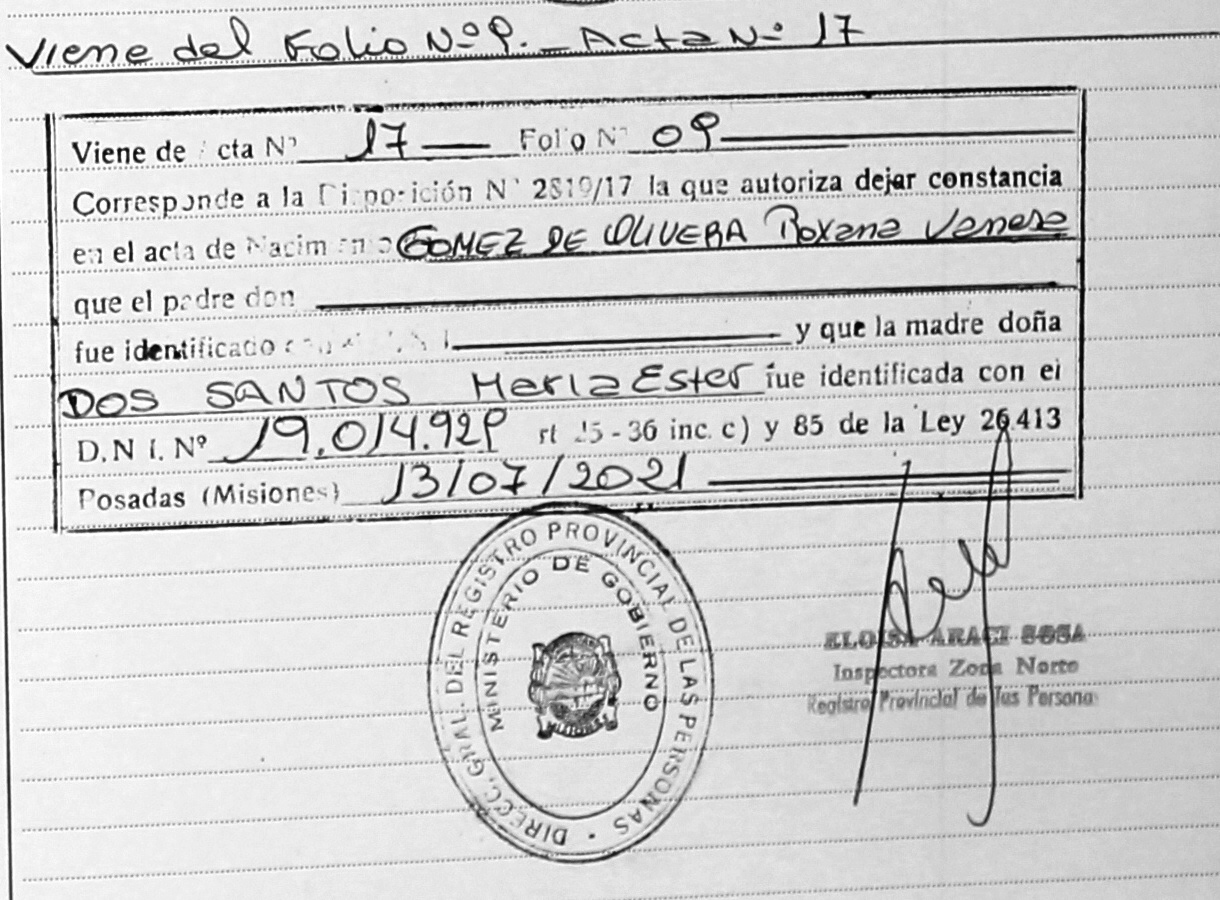 Viene del Folio Nº 9. _ Acta Nº 17
Viene de cta Nº 17 — Folio Nº 09
Corresponde a la Disposición Nº 2819/17 la que autoriza dejar constancia
en el acta de Nacim GOMEZ DE OLIVERA Roxana Vanesa
que el padre don
fue identificado y que la madre doña
DOS SANTOS Maria Ester fue identificada con el
D.N I. Nº 19.014.929 rt 35 - 36 inc. c) y 85 de la Ley 26.413
Posadas (Misiones) 13/07/2021
DIRECC. GRAL. DEL REGISTRO PROVINCIAL DE LAS PERSONAS
MINISTERIO DE GOBIERNO
ARACI SOSA
Inspectora Zona Norte
Registro Provincial de las Persona